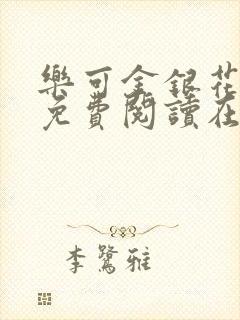 樂可金銀花
免費閱讀在
李鷺雅